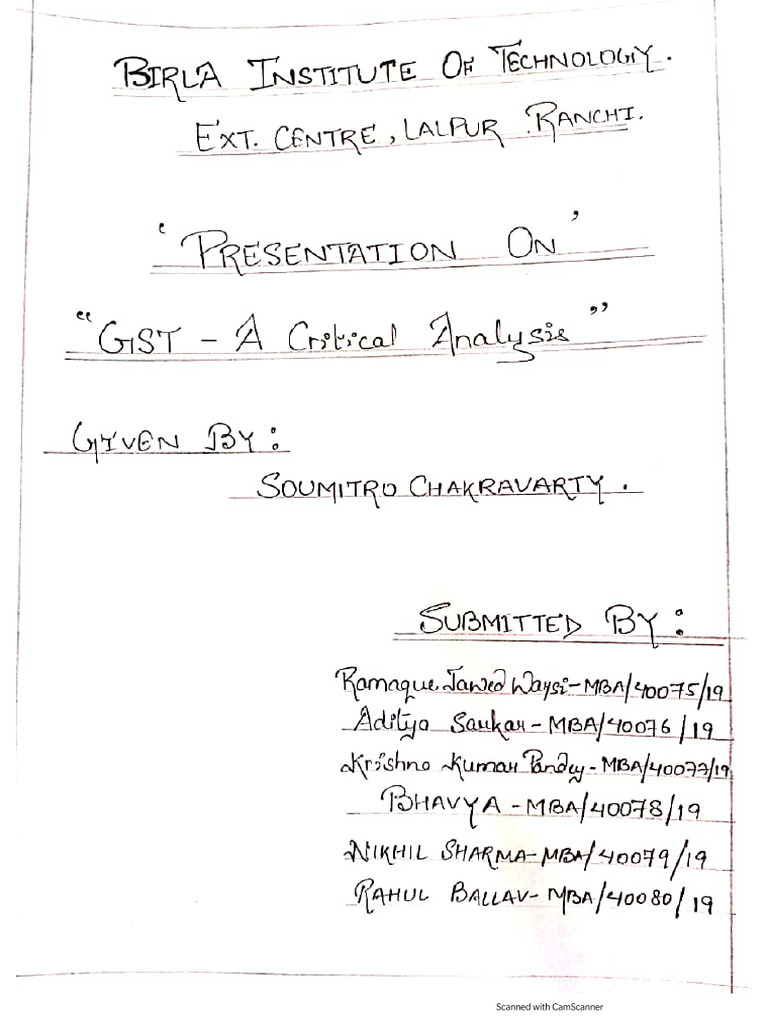 BIRLA INSTITUTE OF TECHNOLOGY.
EXT. CENTRE, LALPUR RANCHI.
' PRESENTATION ON '
" GST - A Critical Analysis "
GIVEN BY:
SOUMITRO CHAKRAVARTY.
SUBMITTED BY:
Ramaque Jawed Waysi-MBA/40075/19
Aditya Sarkar-MBA/40076/19
Krishna Kumar Pandey-MBA/40077/19
BHAVYA-MBA/40078/19
NIKHIL SHARMA-MBA/40079/19
RAHUL BALLAV-MBA/40080/19
Scanned with CamScanner